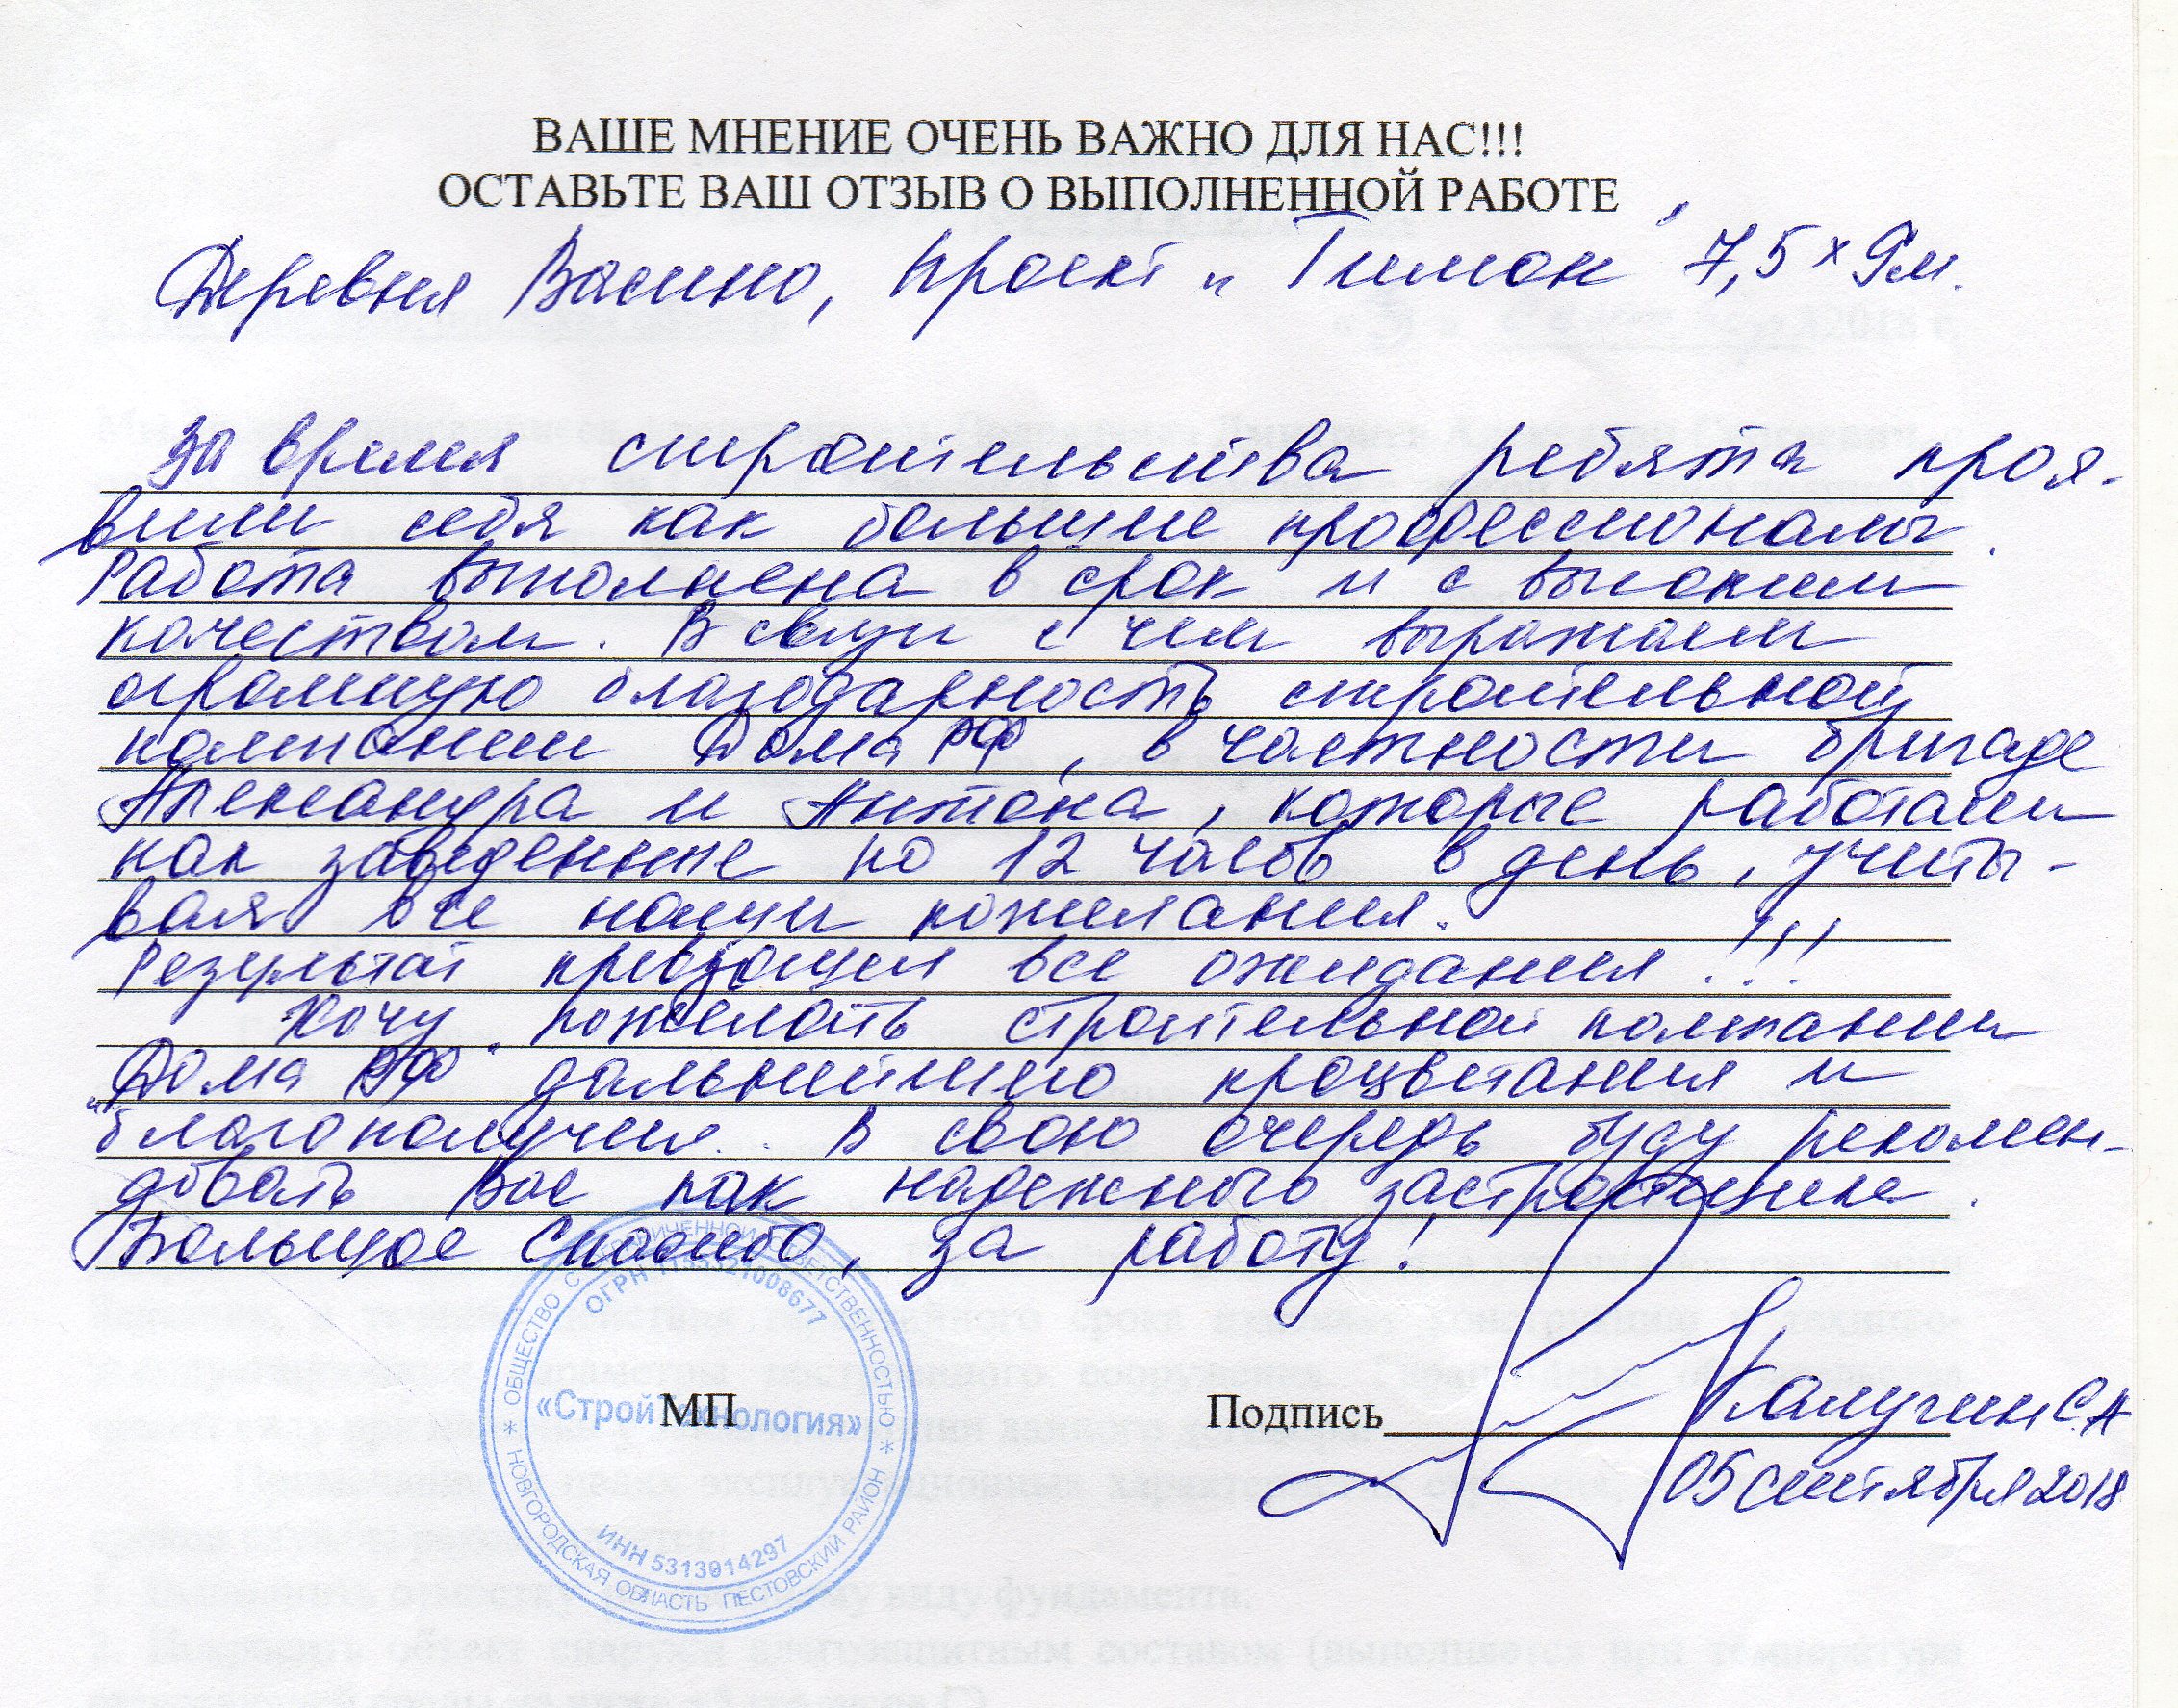 ВАШЕ МНЕНИЕ ОЧЕНЬ ВАЖНО ДЛЯ НАС!!!
ОСТАВЬТЕ ВАШ ОТЗЫВ О ВЫПОЛНЕННОЙ РАБОТЕ
Деревня Васино, проект "Тимон" 7,5 х 9м.
За время строительства ребята проя-
вили себя как большие профессионалы.
Работа выполнена в срок и с высоким
качеством. В связи с чем выражаем
огромную благодарность строительной
компании Дома РФ, в частности бригаде
Александра и Антона, которые работали
как заведенные по 12 часов в день, учиты-
вая все наши пожелания.
Результат превзошел все ожидания!!!
Хочу пожелать строительной компании
Дома РФ дальнейшего процветания и
благополучия. В свою очередь буду рекомен-
довать Вас как надежного застройщика.
Большое Спасибо, за работу!
ОБЩЕСТВО С ОГРАНИЧЕННОЙ ОТВЕТСТВЕННОСТЬЮ
ОГРН 1155321008677
«СтройТехнология»
МП
Подпись
Калугин С.А
05 сентября 2018
ИНН 5313014297
НОВГОРОДСКАЯ ОБЛАСТЬ ПЕСТОВСКИЙ РАЙОН